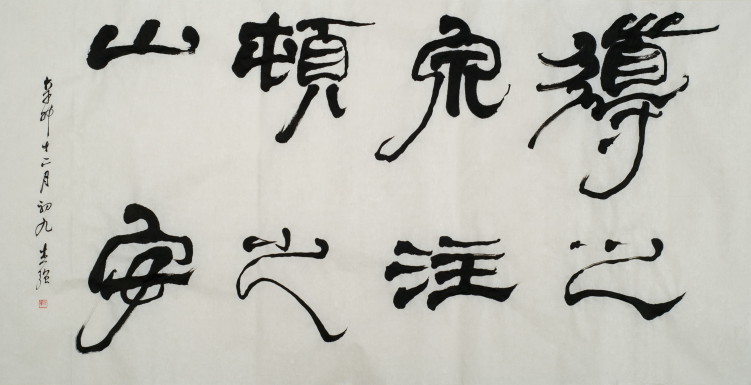 導之
泉注
頓之
山安
辛卯十二月初九